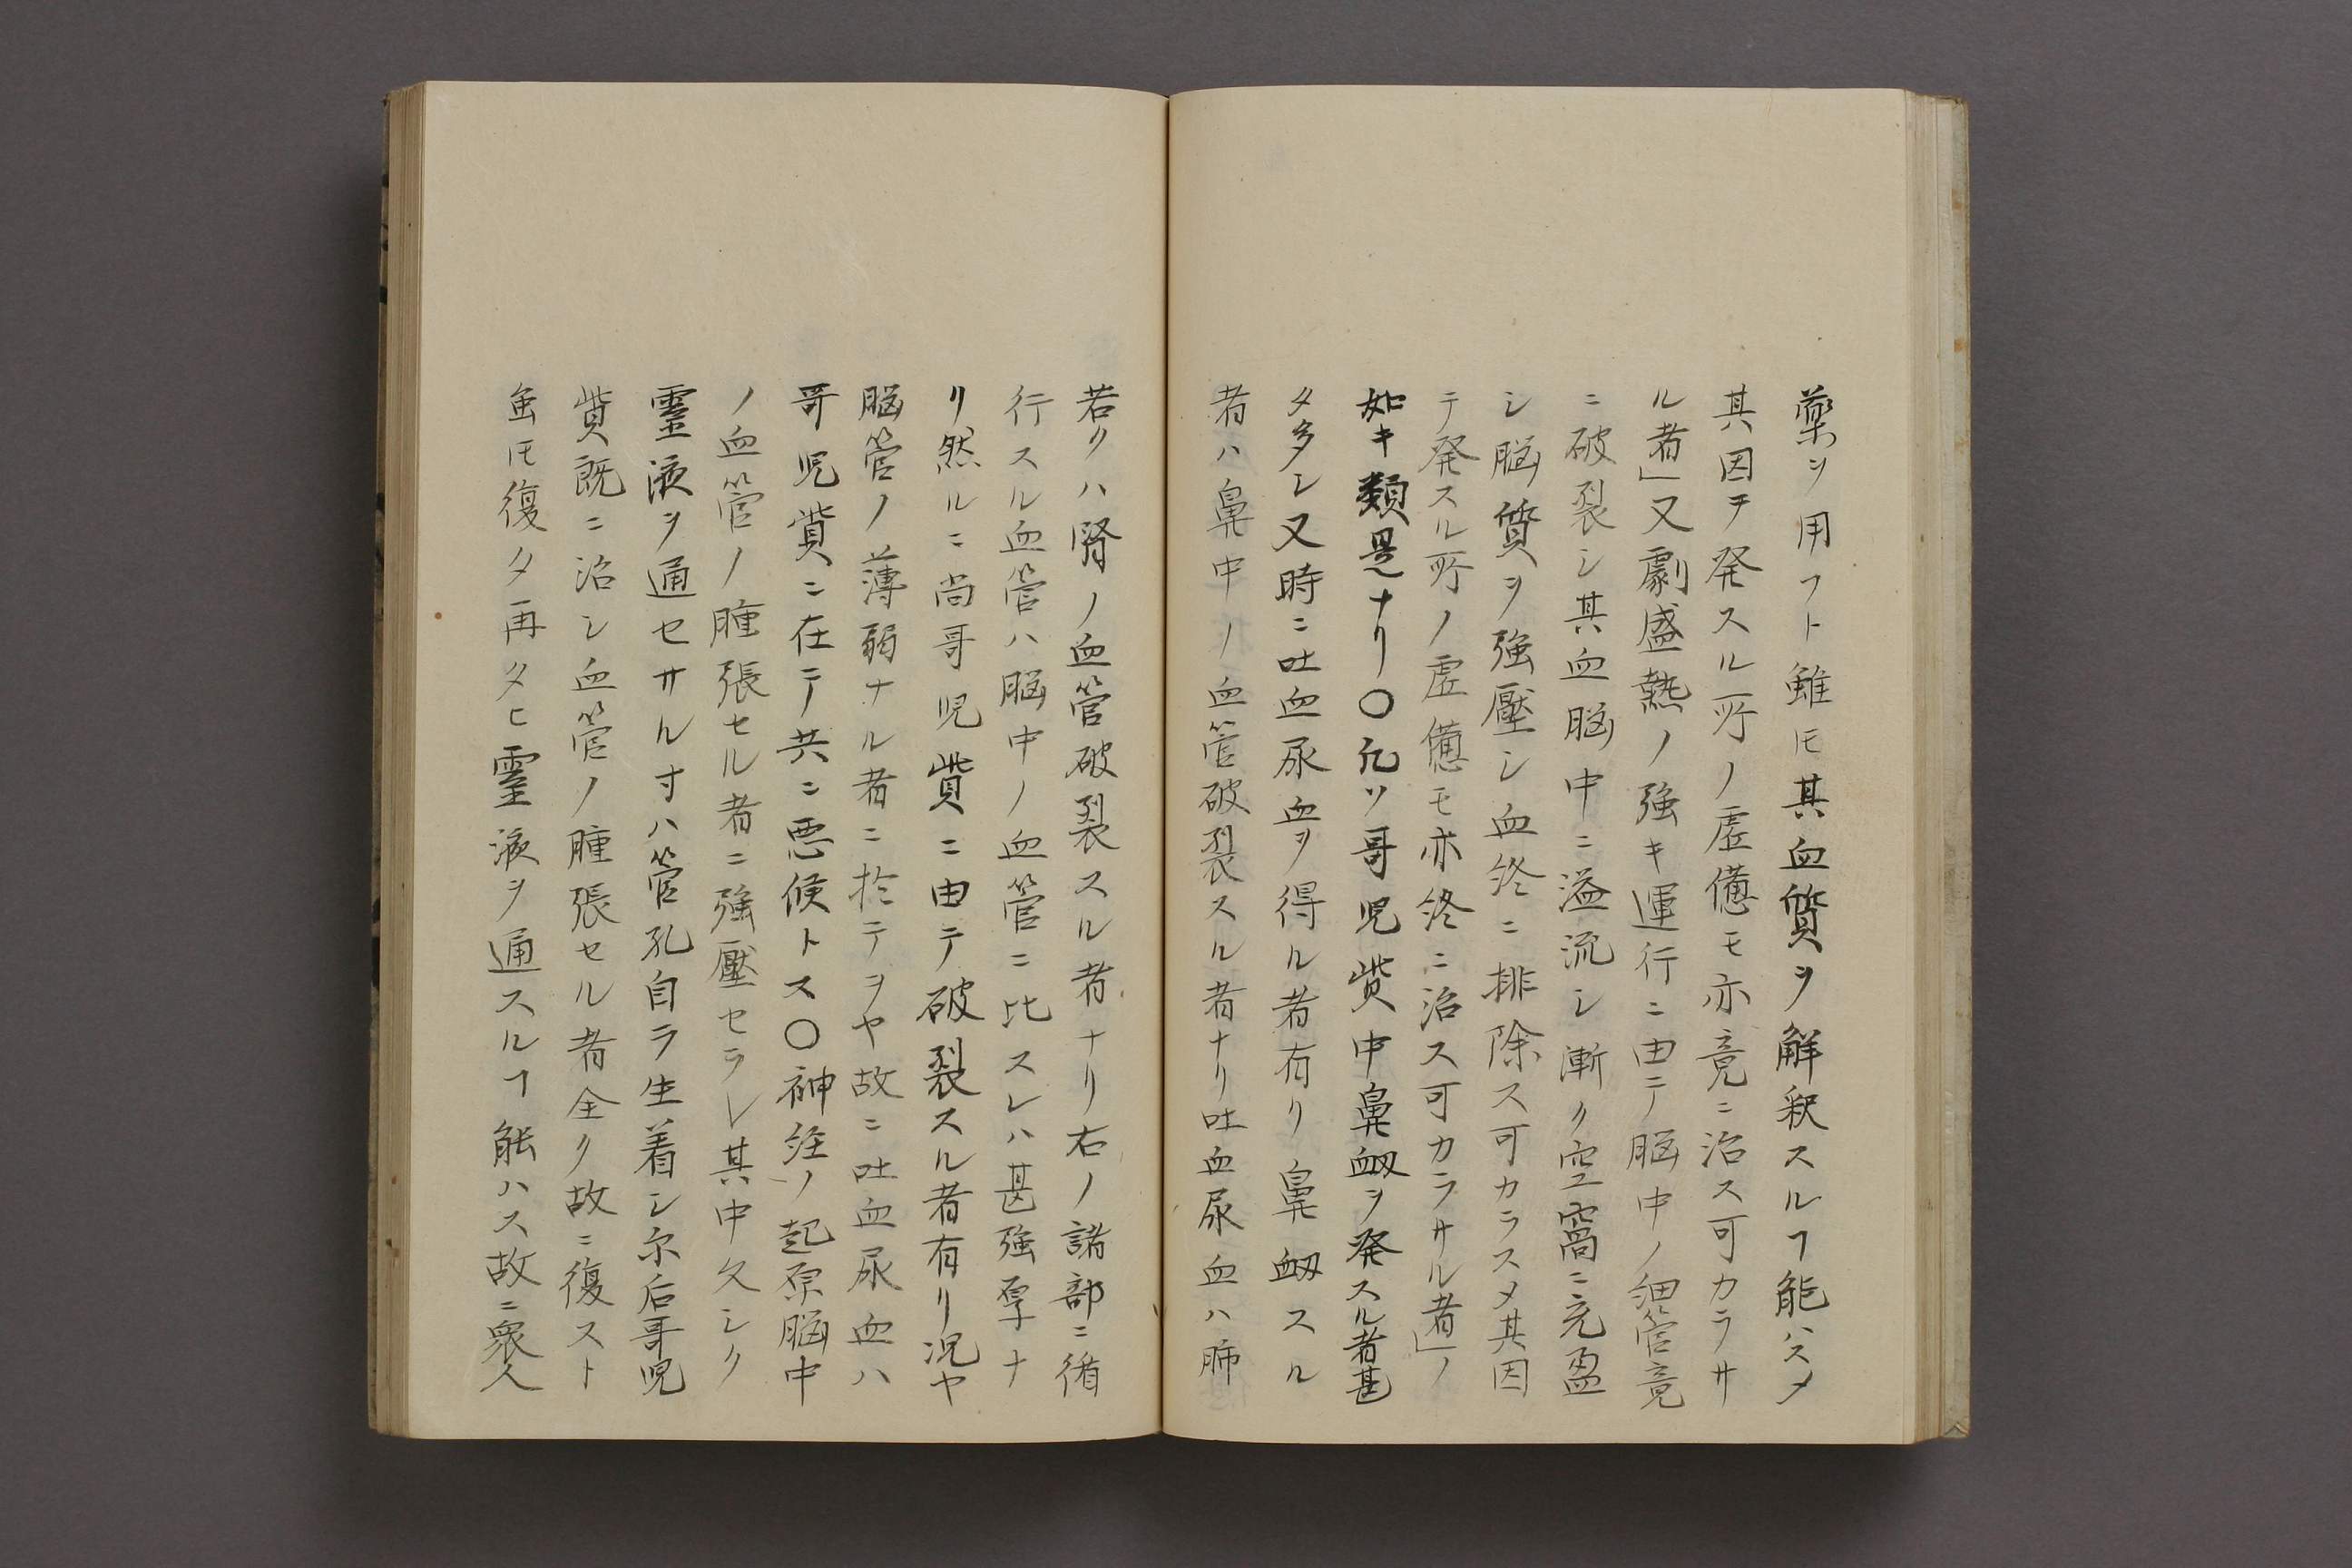 薬ヲ用フト雖𪜈其血質ヲ解釈スルヿ能ハスメ
其因テ発スル所ノ虚憊モ亦竟ニ治ス可カラサ
ル者」又劇盛熱ノ強キ運行ニ由テ脳中ノ細管竟
ニ破裂シ其血脳中ニ溢流シ漸ク空窩ニ充盈
シ脳質ヲ強壓シ血終ニ排除ス可カラスメ其因
テ発スル所ノ虚憊モ亦終ニ治ス可カラサル者」ノ
如キ類是ナリ〇凡ソ哥児贅中鼻衂ヲ発スル者甚
タ多シ又時ニ吐血尿血ヲ得ル者有リ鼻衂スル
者ハ鼻中ノ血管破裂スル者ナリ吐血尿血ハ肺
若クハ腎ノ血管破裂スル者ナリ右ノ諸部ニ循
行スル血管ハ脳中ノ血管ニ比スレハ甚強厚ナ
リ然ルニ尚哥児贅ニ由テ破裂スル者有リ况ヤ
脳管ノ薄弱ナル者ニ於テヲヤ故ニ吐血尿血ハ
哥児贅ニ在テ共ニ悪候トス〇神経ノ起原脳中
ノ血管ノ腫張セル者ニ強壓セラレ其中久シク
靈液ヲ通セサル寸ハ管孔自ラ生着シ尓后哥児
贅既ニ治シ血管ノ腫張セル者全ク故ニ復スト
虽𪜈復タ再タヒ靈液ヲ通スルヿ能ハス故ニ衆人